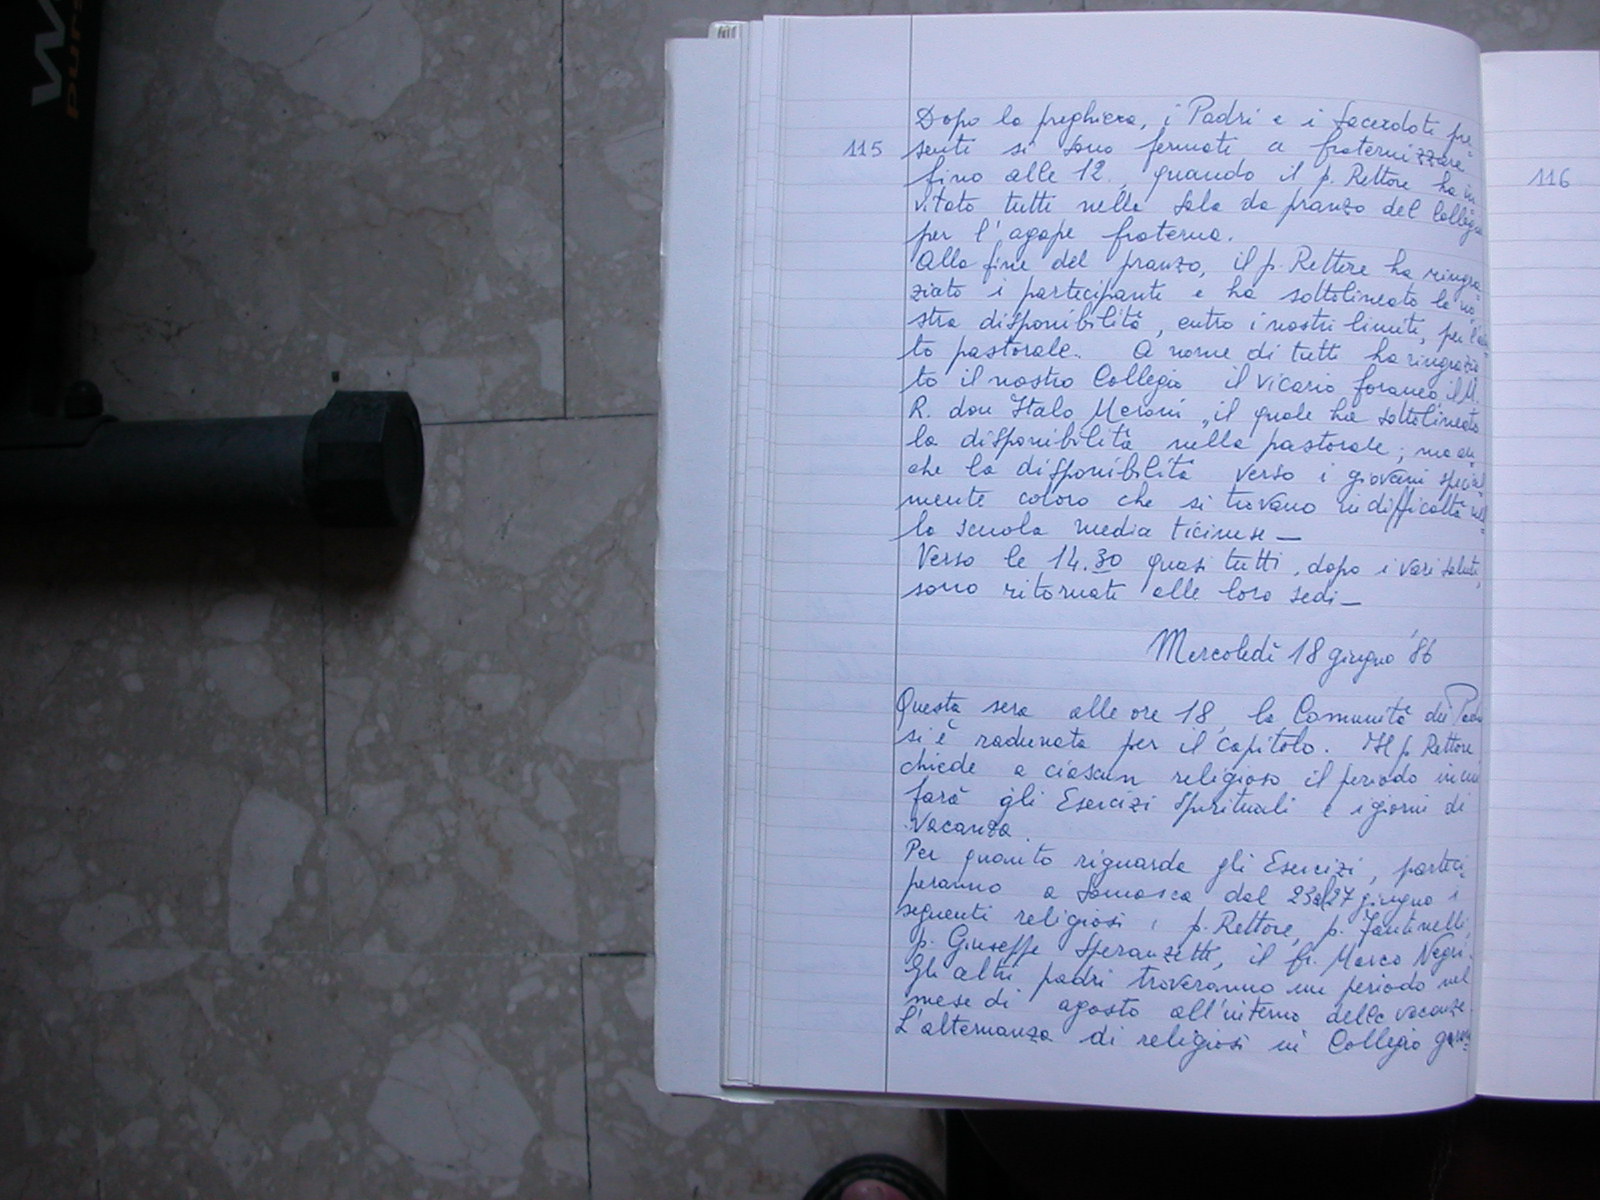 115
116
Dopo la preghiera, i Padri e i Sacerdoti pre-
senti si sono fermati a fraternizzare
fino alle 12, quando il p. Rettore ha in-
vitato tutti nella sala da pranzo del Collegio
per l'agape fraterna.
Alla fine del pranzo, il p. Rettore ha ringra-
ziato i partecipanti e ha sottolineato la no-
stra disponibilità, entro i nostri limiti, per l'aiu-
to pastorale. A nome di tutti ha ringrazia-
to il nostro Collegio il vicario foraneo, il M.
R. don Italo Meroni, il quale ha sottolineato
la disponibilità nella pastorale; ma an-
che la disponibilità verso i giovani special-
mente coloro che si trovano in difficoltà nel-
la scuola media ticinese —
Verso le 14.30 quasi tutti, dopo i vari saluti,
sono ritornati alle loro sedi —
Mercoledì 18 giugno '86
Questa sera alle ore 18, la Comunità dei Padri
si è radunata per il capitolo. Il p. Rettore
chiede a ciascun religioso il periodo in cui
farà gli Esercizi Spirituali e i giorni di
vacanza.
Per quanto riguarda gli Esercizi, parteci-
peranno a Somasca dal 23 al 27 giugno i
seguenti religiosi: p. Rettore, p. Fantinelli,
p. Giuseppe Speranzetti, il fr. Marco Negri.
Gli altri padri troveranno un periodo nel
mese di agosto all'interno delle vacanze.
L'alternanza di religiosi in Collegio